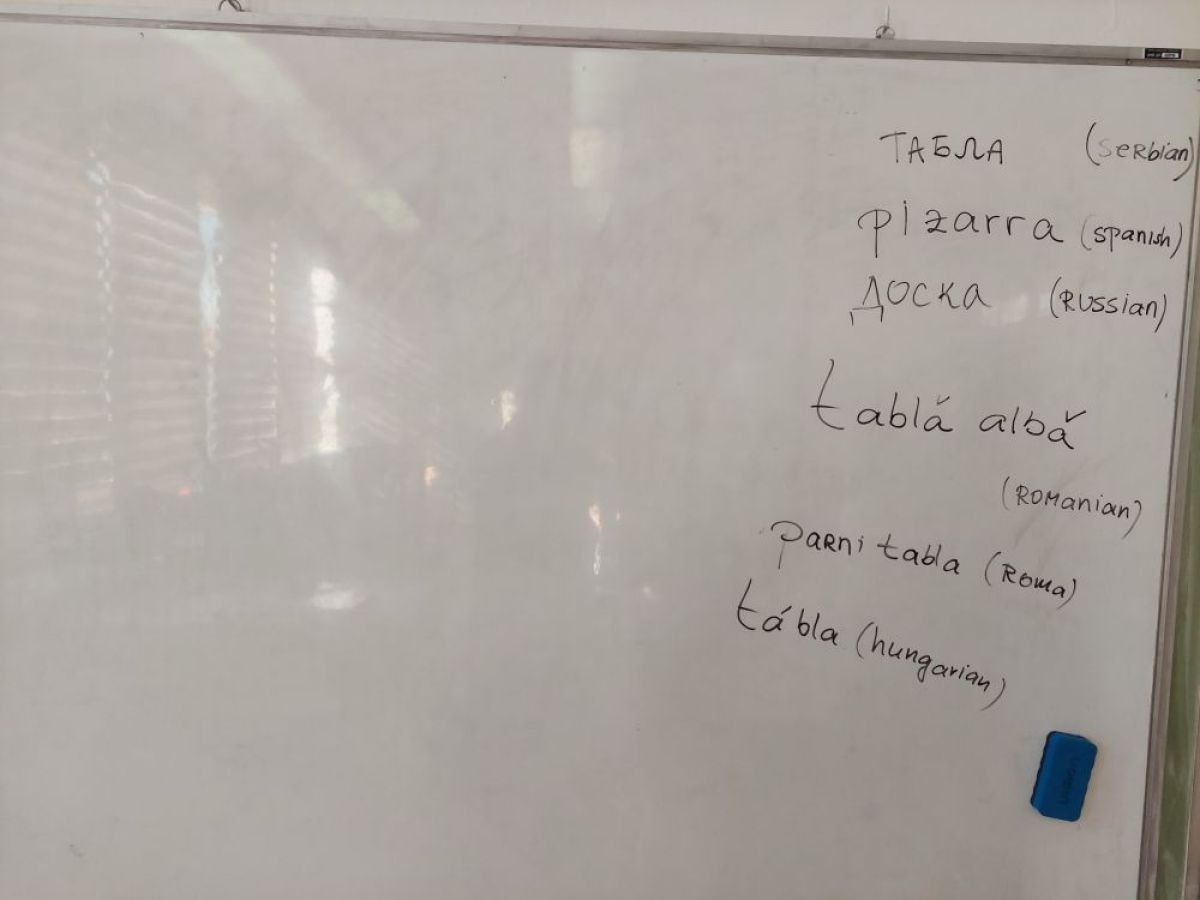 ТАБЛА (serbian)
pizarra (spanish)
ДОСКА (Russian)
tablă albă
(Romanian)
parni tabla (Roma)
tábla (hungarian)